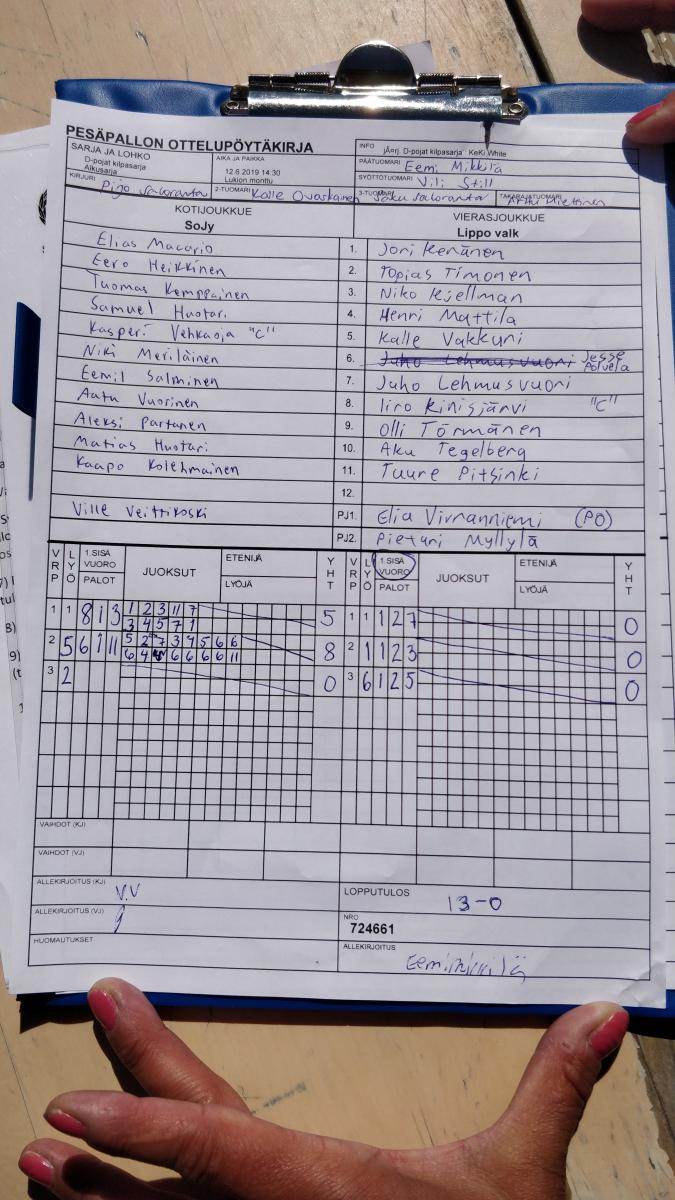 PESÄPALLON OTTELUPÖYTÄKIRJA
SARJA JA LOHKO
D-pojat kilpasarja
Alkusarja
AIKA JA PAIKKA
12.6.2019 14:30
Lukion monttu
INFO
jÄerj. D-pojat kilpasarja : KeKi White
PÄÄTUOMARI Eemi Mikkilä
SYÖTTÖTUOMARI Vili Still
KIRJURI Pigo Saloranta
2-TUOMARI Kalle Ovaskainen
3-TUOMARI Saku Saloranta
TAKARAJATUOMARI Arttu Miettinen
KOTIJOUKKUE
SoJy
VIERASJOUKKUE
Lippo valk
Elias Macario 1. Joni Keränen
Eero Heikkinen 2. Topias Timonen
Tuomas Kemppainen 3. Niko Kjellman
Samuel Huotari 4. Henri Mattila
Kasperi Vehkaoja "C" 5. Kalle Vakkuri
Niki Meriläinen 6. Juho Lehmusvuori Jesse Polvela
Eemil Salminen 7. Juho Lehmusvuori
Aatu Vuorinen 8. Iiro Kinisjärvi "C"
Aleksi Partanen 9. Olli Törmänen
Matias Huotari 10. Aku Tegelberg
Kaapo Kolehmainen 11. Tuure Pitsinki
12.
Ville Veittikoski PJ1. Elia Virnanniemi (PO)
PJ2. Pieturi Myllylä
VRP LYÖ 1.SISÄ VUORO PALOT JUOKSUT ETENIJÄ LYÖJÄ YHT VRP LYÖ 1.SISÄ VUORO PALOT JUOKSUT ETENIJÄ LYÖJÄ YHT
1 1 8 1 3 1 2 3 11 7 5 1 1 1 2 7 0
3 4 5 7 1
2 5 6 1 11 5 2 7 3 4 5 6 6 8 2 1 1 2 3 0
6 4 6 6 6 6 11
3 2 0 3 6 1 2 5 0
VAIHDOT (KJ)
VAIHDOT (VJ)
ALLEKIRJOITUS (KJ) V.V
LOPPUTULOS 13-0
ALLEKIRJOITUS (VJ)
NRO
724661
HUOMAUTUKSET
ALLEKIRJOITUS
Eemi Mikkilä